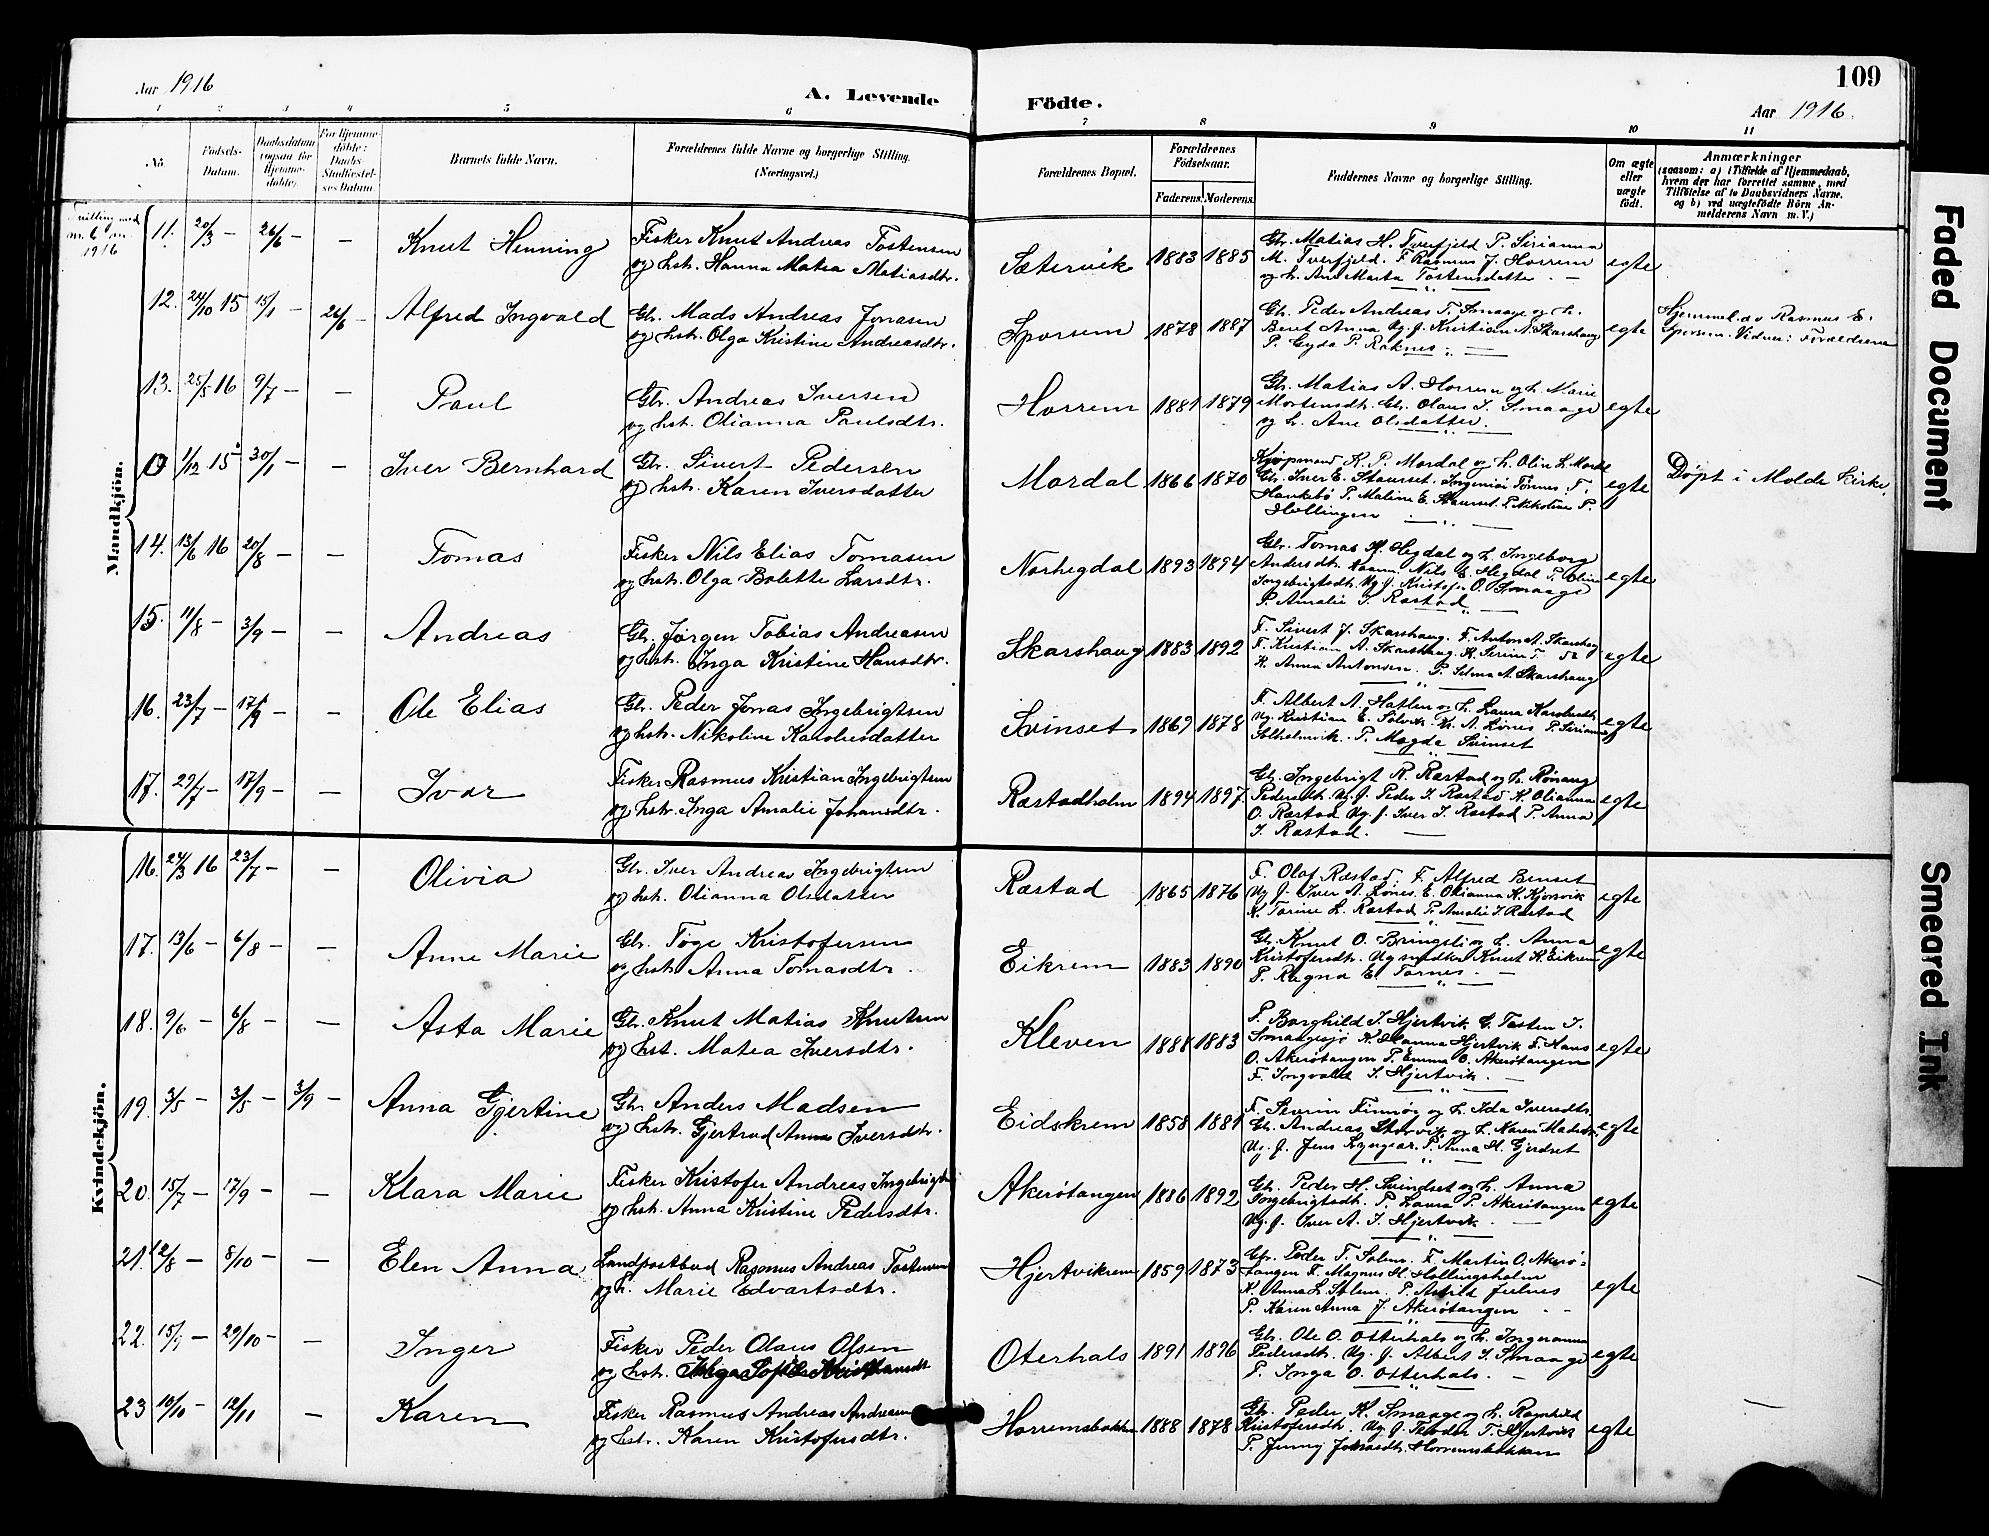 109
Aar 1916
A. Levende Födte.
Aar 1916.
1 2 3 4 5 6 7 8 9 10 11
No. Födsels-Datum. Daabsdatum (ogsaa for Hjemme-döbte). For Hjemme-döbte: Daabs-Stadfæstel-ses Datum. Barnets fulde Navn. Forældrenes fulde Navne og borgerlige Stilling. (Næringsvei.)
Forældrenes Bopæl. Forældrenes Födselsaar. Faderens. Moderens. Faddernes Navne og borgerlige Stilling. Om ægte eller uægte födt.
Anmærkninger
(saasom: a) i Tilfælde af Hjemmedaab,
hvem der har forrettet samme, med
Tilföielse af to Daabsvidners Navne.
og b) ved uægtefödte Börn An-
melderens Navn m. V.)
Mandkjön.
Tvilling med
nr. 6
1916
11. 20/3 – 26/6 – – Knut Henning
Fisker Knut Andreas Tostensen
og hstr. Hanna Matea Matiasdtr.
Sætervik 1883 1885
Gbr. Matias H. Tverfjeld P. Sirianna
M. Tverfjeld. F. Rasmus J. Horrem
og h. Ane Marta Tostensdatter
egte
12. 24/10 15 15/1 – 26/6 – Alfred Ingvald
Gbr. Mads Andreas Jonasen
og hstr. Olga Kristine Andreasdtr.
Sporsem 1878 1887
Gbr. Peder Andreas T. Smaage og h.
Beret Anna Ug. J. Kristian N. Skarshaug
P. Gyda P. Raknes
egte
Hjemmed. av Rasmus E.
Sporsem. Vidner: Forældrene
13. 25/5 16 9/7 – – Paul
Gbr. Andreas Iversen
og hstr. Olianna Paulsdtr.
Horrem 1881 1879
Gbr. Matias A. Horrem og h. Marie
Mortensdtr. Gbr. Olaus I. Smaage
og h. Ane Olsdatter.
egte
0 1/12 15 30/1 – – Iver Bernhard
Gbr. Sivert Pedersen
og hstr. Karen Iversdatter
Mordal 1866 1870
Kjøpmand K. P. Mordal og h. Olin L. Mordal
Gbr. Iver E. Staurset. Ingeniør Tønnes T.
Haukebø P. Maline E. Staurset. P. Nikoline P.
Hollingen
egte
Døpt i Molde kirke.
14. 13/6 16 20/8 – – Tomas
Fisker Nils Elias Tomasen
og hstr. Olga Bolette Larsdtr.
Norhegdal 1893 1894
Gbr. Tomas N. Hegdal og h. Ingeborg
Andersdtr. Nils E. Hegdal P. Oline
Ingebrigtsdtr. Ug. J. Kristofer O. Smaage
P. Amalie I. Ræstad
egte
15. 11/8 – 3/9 – – Andreas
Gbr. Jørgen Tobias Andreasen
og hstr. Inga Kristine Hansdtr.
Skarshaug 1883 1892
F. Sivert J. Skarshaug. F. Anton A. Skarshaug
F. Kristian A. Skarshaug. K. Serine T.
K. Anna Antonsen. P. Selma A. Skarshaug
egte
16. 23/7 – 17/9 – – Ole Elias
Gbr. Peder Jonas Ingebrigtsen
og hstr. Nikoline Karolusdatter
Svinset 1869 1878
F. Albert A. Hatlen og h. Laura Karolusdtr.
Ug. Kristian E. Solvik. K. A. Lønes P. Sirianna
Solholmvik. P. Magda Svinset
egte
17. 29/7 – 17/9 – – Ivar
Fisker Rasmus Kristian Ingebrigtsen
og hstr. Inga Amalie Johansdtr.
Ræstadholm 1894 1897
Gbr. Ingebrigt R. Ræstad og h. Rønaug
Pedersdtr. Ug. J. Peder I. Ræstad K. Olianna
O. Ræstad Ug. J. Iver I. Ræstad P. Anna
I. Ræstad.
egte
Kvindekjön.
16. 24/3 16 23/7 – – Olivia
Gbr. Iver Andreas Ingebrigtsen
og hstr. Olianna Olsdatter
Ræstad 1865 1876
F. Olaf Ræstad. F. Alfred Benset
Ug. J. Iver A. Lønes. E. Olianna K. Kjørsvik
K. Torine L. Ræstad P. Amalie I. Ræstad
egte
17. 13/6 – 6/8 – – Anne Marie
Gbr. Tøge Kristofersen
og hstr. Anna Tomasdtr.
Eikrem 1883 1890
Gbr. Knut O. Bringsli og h. Anna
Kristofersdtr. Ug smedker Knut K. Eikrem
P. Ragna E. Tornes.
egte
18. 9/6 – 6/8 – – Asta Marie
Gbr. Knut Matias Knutsen
og hst. Matea Iversdtr.
Kleven 1888 1883
P. Borghild I. Hjertvik G. Tosten I.
Smaagesjø K. Hanna Hjertvik F. Hans
O. Akerøtangen P. Emma O. Akerøtangen
F. Ingvald I. Hjertvik.
egte
19. 3/5 – 3/5 – 3/9 – Anna Gjertine
Gbr. Anders Madsen
og hstr. Gjertrud Anna Iversdtr.
Eidskrem 1858 1881
F. Severin Finnøy og h. Ida Iversdtr.
Gbr. Andreas Storvik og h. Karen Madsdtr.
Ug. J. Jens Lyngvær. P. Anna H. Gjerdset
egte
20. 15/7 – 17/9 – – Klara Marie
Fisker Kristofer Andreas Ingebrigts
og hstr. Anna Kristine Pedersdtr.
Akerøtangen 1886 1892
Gbr. Peder H. Svindset og h. Anna
Ingebrigtsdtr. P. Laura P. Akerøtangen
Ug. J. Iver A. I. Hjertvik.
egte
21. 12/8 – 8/10 – – Elen Anna
Landpostbud Rasmus Andreas Tostensen
og h. Marie Edvartsdtr.
Hjertvikrem 1859 1873
Gbr. Peder T. Solem. F. Martin O. Akerø-
tangen F. Magnus H. Hollingsholm
K. Anna L. Solem. P. Astrid Julnes
P. Karen Anna J. Akerøtangen
egte
22. 15/9 – 29/10 – – Inger
Fisker Peder Olaus Olsen
og hstr. Inga Sofie Kristiansdt
Oterhals 1891 1896
Gbr. Ole O. Otterhals og h. Ingeranna
Pedersdtr. Ug. J. Albert I. Smaage
P. Inga O. Otterhals.
egte
23 10/10 – 12/11 – Karen
Fisker Rasmus Andreas Andreasen
og hstr. Karen Kristofersdtr.
Horremsbakken 1888 1878
Gbr. Peder K. Smaage og h. Ragnhild
Kristofersdtr. Ug. J. Teodor T. Hjertvik
P. Jenny Johansdtr. Horremsbakken
egte
Faded Document
Smeared Ink